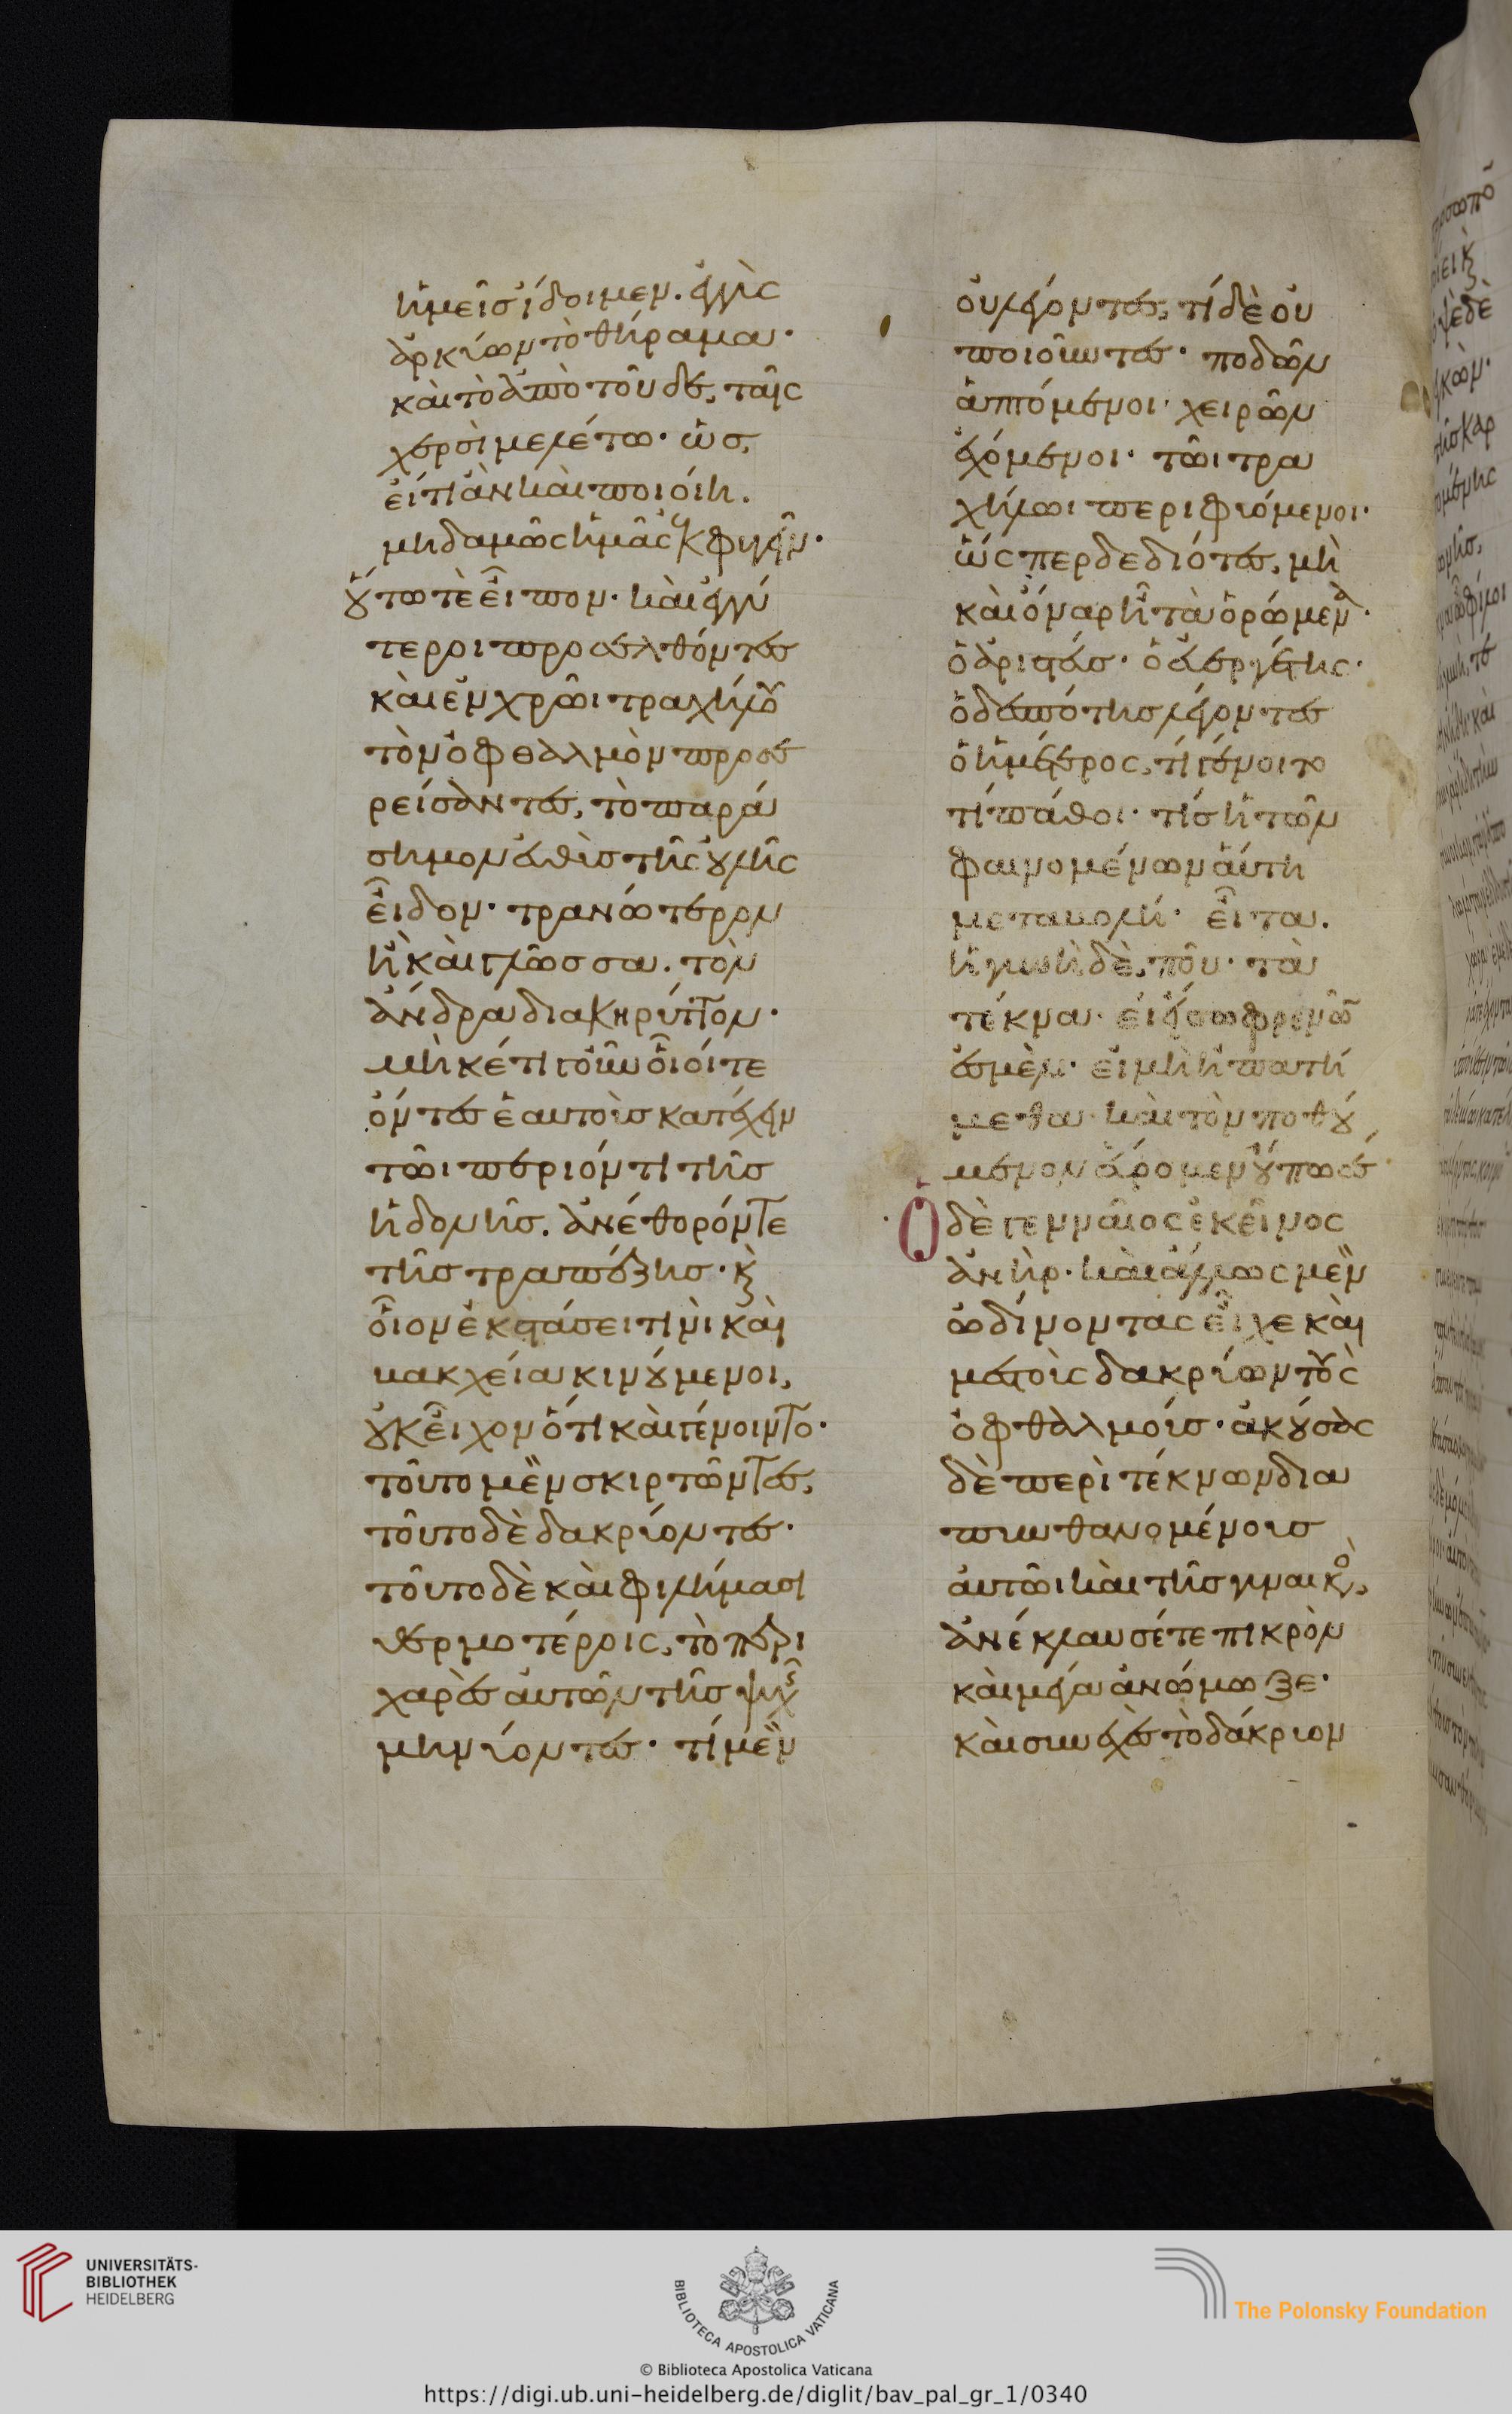 ἡμεῖς ἴδοιμεν. ἐγγὺς
ἀρκύων τὸ θήραμα·
καὶ τὸ ἀπὸ τοῦδε, ταῖς
χερσὶ μελέτω· ὡς,
εἴ τι ἂν καὶ ποιοίη.
μηδαμῶς ἡμᾶς ἐκφυγεῖν·
οὕτω τὲ εἶπον· καὶ ἐγγύ
τεροι προσελθόντες
καὶ ἐν χρῶι τραχήλου
τὸν ὀφθαλμὸν προσε
ρείσαντες, τὸ παρά
σημον εὐθὺς τῆς οὐλῆς
εἶδον· τρανώτερον
ἢ καὶ γλῶσσα. τὸν
ἄνδρα διακηρύττον·
μηκέτι γοῦν οἷοί τε
ὄντες ἑαυτοὺς κατέχειν
τῶι περιόντι τῆς
ἡδονῆς. ἀνέθορόν τε
τῆς τραπέζης· κ
οἷον ἐκστάσει τινὶ καὶ
βακχείᾳ κινούμενοι,
οὐκ εἶχον ὅτι καὶ γένοιντο·
τοῦτο μὲν σκιρτῶντες,
τοῦτο δὲ δακρύοντες·
τοῦτο δὲ καὶ φιλήμασι
θερμοτέροις, τὸ περι
χαρὲς αὐτῶν τῆς ψυχῆς
μηνύοντες· τί μὲν
οὐ λέγοντες, τί δὲ οὐ
ποιοῦντες· ποδῶν
ἁπτόμενοι· χειρῶν
ἐχόμενοι· τῶι τρα
χήλωι περιφυόμενοι·
ὥσπερ δεδιότες, μὴ
καὶ ὄναρ ἦ τὰ ὁρώμενα·
ὁ ἀριστεύς· ὁ εὐεργέτης·
ὁ δεσπότης λέγοντες
ὁ ἡμέτερος, τί γένοιτο
τί πάθοι· τίς ἡ τῶν
φαινομένων αὕτη
μεταβολή· εἶτα.
ἡ γυνὴ δὲ, ποῦ· τὰ
τέκνα· εἰ ἔσω φρενῶν
ἐσμὲν· εἰ μὴ ἠπατή
μεθα· καὶ τὸν ποθού
μενον εὕρομεν οὕπω σέ·
Ὁ δὲ γενναῖος ἐκεῖνος
ἀνὴρ· καὶ ἄλλως μὲν
ὠδίνοντας εἶχε καὶ
μεστοὺς δακρύων τοὺς
ὀφθαλμούς· ἀκούσας
δὲ περὶ τέκνων δια
πυνθανομένους
αὐτῶι καὶ τῆς γυναικὸς,
ἀνέκλαυσέ τε πικρὸν
καὶ μέγα ἀνώμωξε·
καὶ συνεχὲς τὸ δάκρυον
UNIVERSITÄTS-
BIBLIOTHEK
HEIDELBERG
BIBLIOTECA APOSTOLICA VATICANA
The Polonsky Foundation
© Biblioteca Apostolica Vaticana
https://digi.ub.uni-heidelberg.de/diglit/bav_pal_gr_1/0340